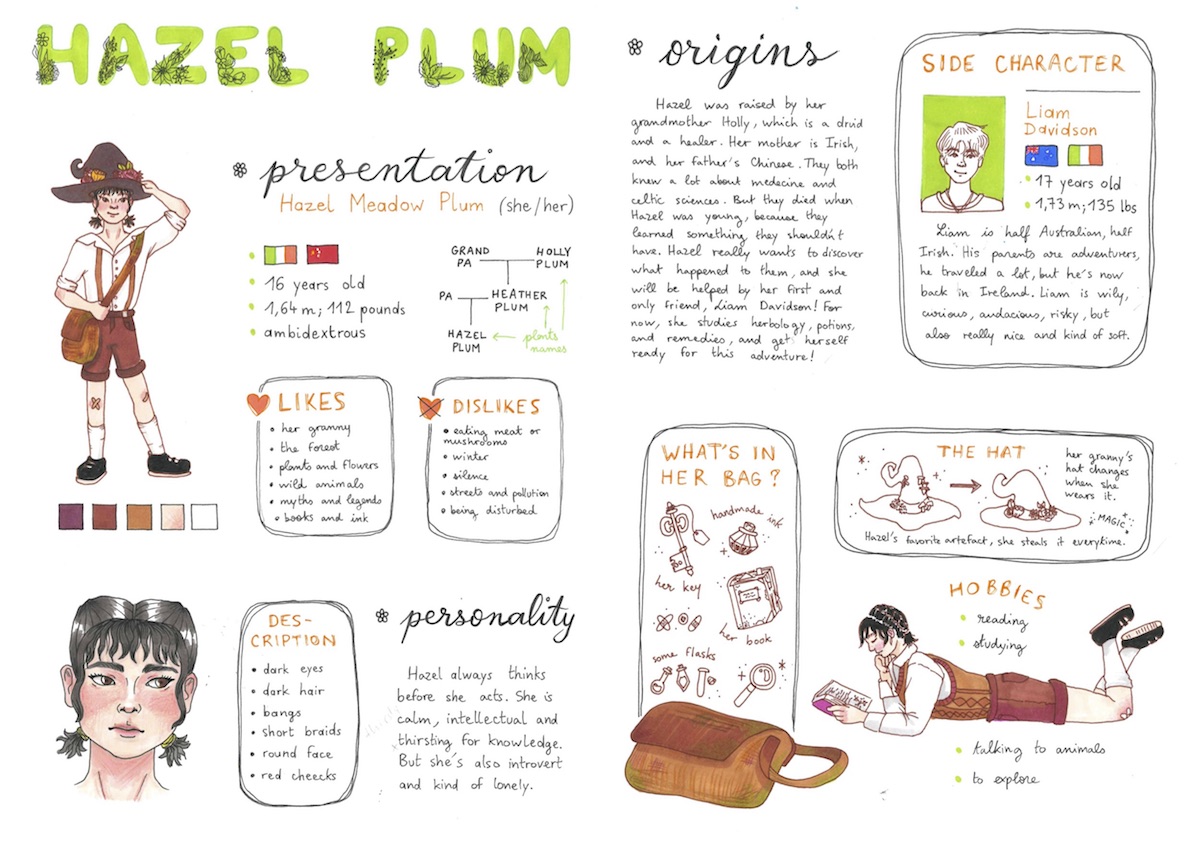 HAZEL PLUM
* presentation
Hazel Meadow Plum (she/her)
• 16 years old
• 1,64 m; 112 pounds
• ambidextrous
GRAND
PA
HOLLY
PLUM
PA
HEATHER
PLUM
HAZEL
PLUM
plants
names
LIKES
• her granny
• the forest
• plants and flowers
• wild animals
• myths and legends
• books and ink
DISLIKES
• eating meat or
mushrooms
• winter
• silence
• streets and pollution
• being disturbed
DES-
CRIPTION
• dark eyes
• dark hair
• bangs
• short braids
• round face
• red cheecks
* personality
Hazel always thinks
before she acts. She is
calm, intellectual and
thirsting for knowledge.
But she's also introvert
and kind of lonely.
* origins
Hazel was raised by her
grandmother Holly, which is a druid
and a healer. Her mother is Irish,
and her father's Chinese. They both
knew a lot about medecine and
celtic sciences. But they died when
Hazel was young, because they
learned something they shouldn't
have. Hazel really wants to discover
what happened to them, and she
will be helped by her first and
only friend, Liam Davidson! For
now, she studies herbology, potions,
and remedies, and get herself
ready for this adventure!
SIDE CHARACTER
Liam
Davidson
• 17 years old
• 1,73 m; 135 lbs
Liam is half Australian, half
Irish. His parents are adventurers,
he traveled a lot, but he's now
back in Ireland. Liam is wily,
curious, audacious, risky, but
also really nice and kind of soft.
WHAT'S IN
HER BAG?
handmade ink
her key
her book
some flasks
THE HAT
her granny's
hat changes
when she
wears it.
MAGIC
Hazel's favorite artefact, she steals it everytime.
HOBBIES
• reading
• studying
• talking to animals
• to explore